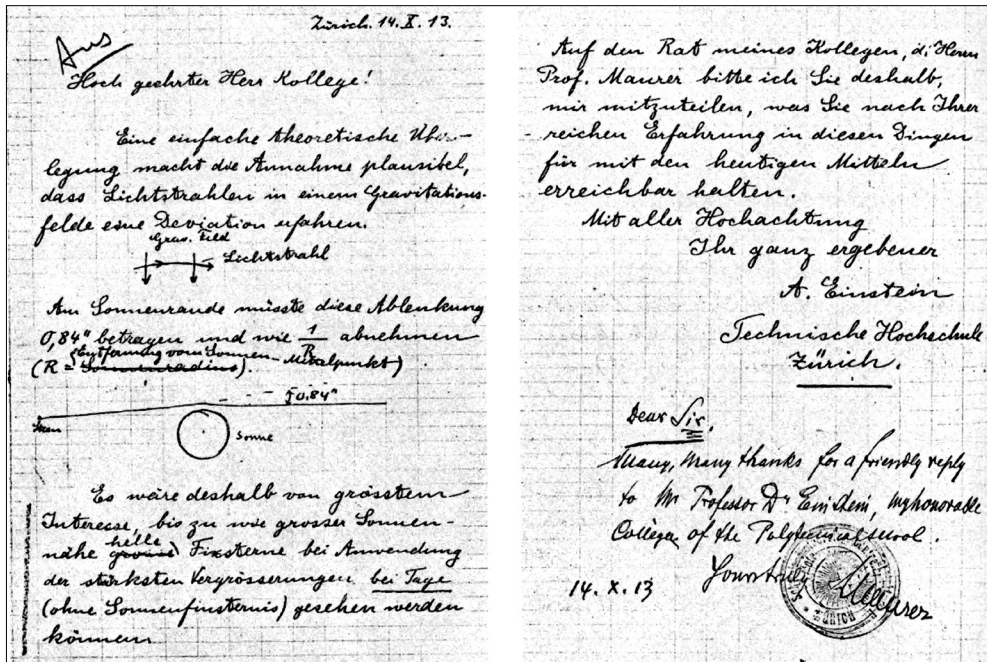 Zürich. 14. X. 13.
Aus
Hoch geehrter Herr Kollege!
Eine einfache theoretische Über-
legung macht die Annahme plausibel,
dass Lichtstrahlen in einem Gravitations-
felde eine Deviation erfahren.
Grav. Feld
Lichtstrahl
Am Sonnenrande müsste diese Ablenkung
0,84" betragen und wie 1/R abnehmen
(R = Sonnenradius Entfernung vom Sonnen-Mittelpunkt).
0.84"
Stern
Sonne
Es wäre deshalb von grösstem
Interesse, bis zu wie grosser Sonnen-
nähe grosse helle Fixsterne bei Anwendung
der stärksten Vergrösserungen bei Tage
(ohne Sonnenfinsternis) gesehen werden
können.
Auf den Rat meines Kollegen, d. Herrn
Prof. Maurer bitte ich Sie deshalb,
mir mitzuteilen, was Sie nach Ihrer
reichen Erfahrung in diesen Dingen
für mit den heutigen Mitteln
erreichbar halten.
Mit aller Hochachtung
Ihr ganz ergebener
A. Einstein
Technische Hochschule
Zürich.
Dear Sir,
Many, many thanks for a friendly reply
to Mr Professor Dr Einstein, my honorable
Collegue of the Polytechnical school.
Yours truly
14. X. 13
Maurer